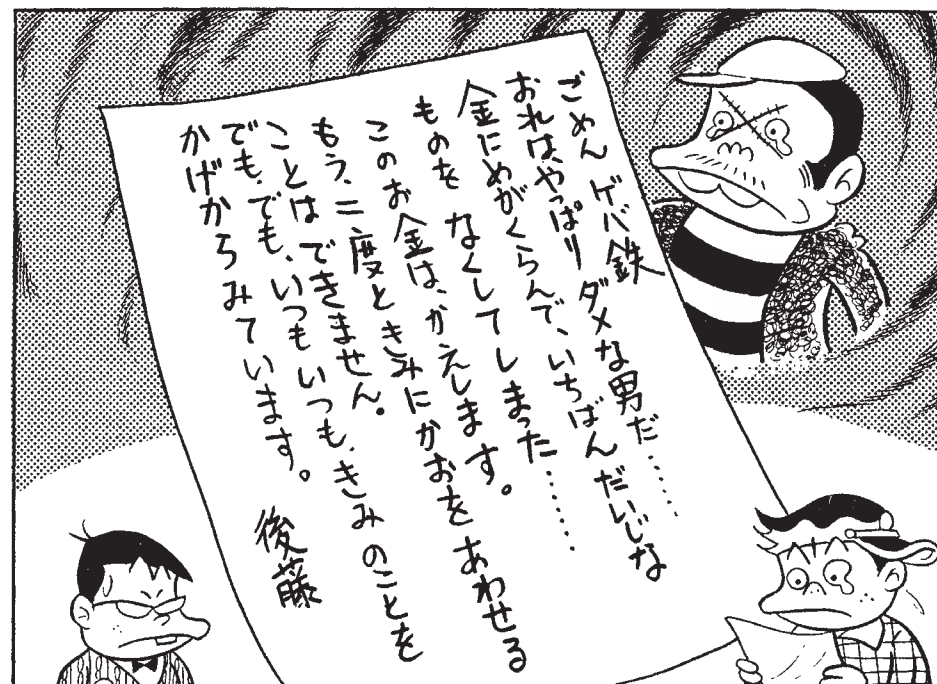 ごめん ゲバ鉄
おれは、やっぱり ダメな男だ……
金にめがくらんで、いちばんだいじな
ものを なくしてしまった……
このお金は、かえします。
もう、二度ときみにかおをあわせる
ことは できません。
でも、でも、いつもいつも、きみのことを
かげからみています。
後藤